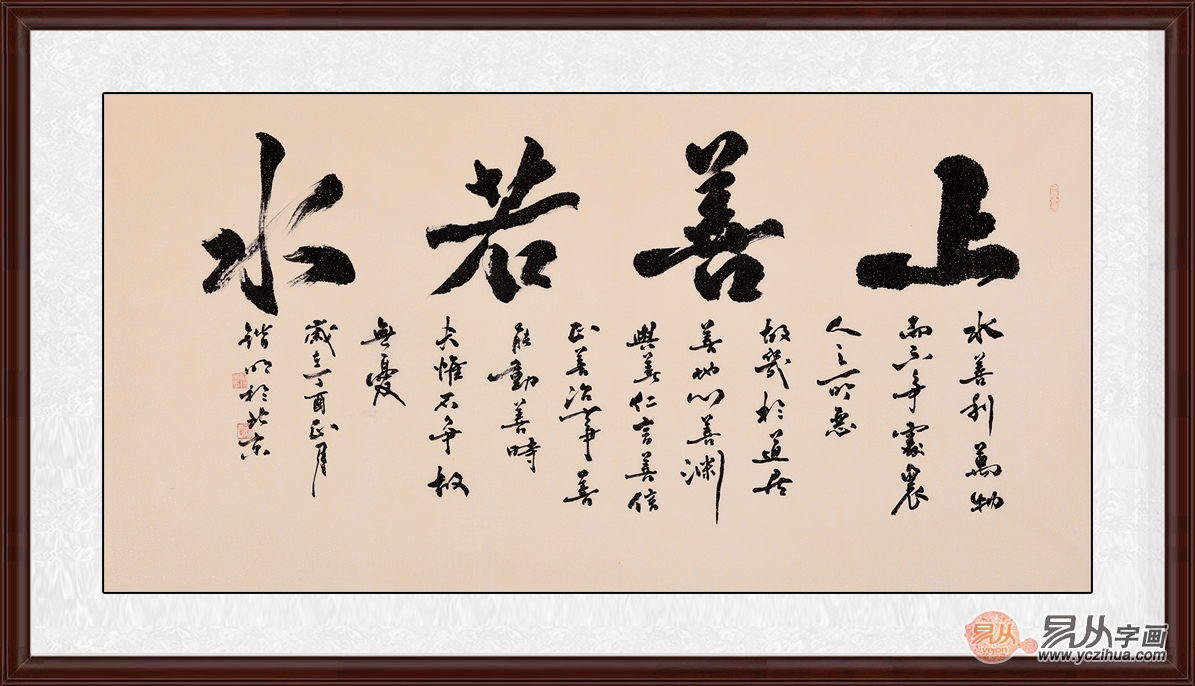 上善若水
水善利萬物
而不争處衆
人之所惡
故幾於道居
善地心善渊
與善仁言善信
正善治事善
能動善時
夫惟不争故
無憂
歲在丁酉正月
锴明於北京
易从
易从字画
www.yczihua.com